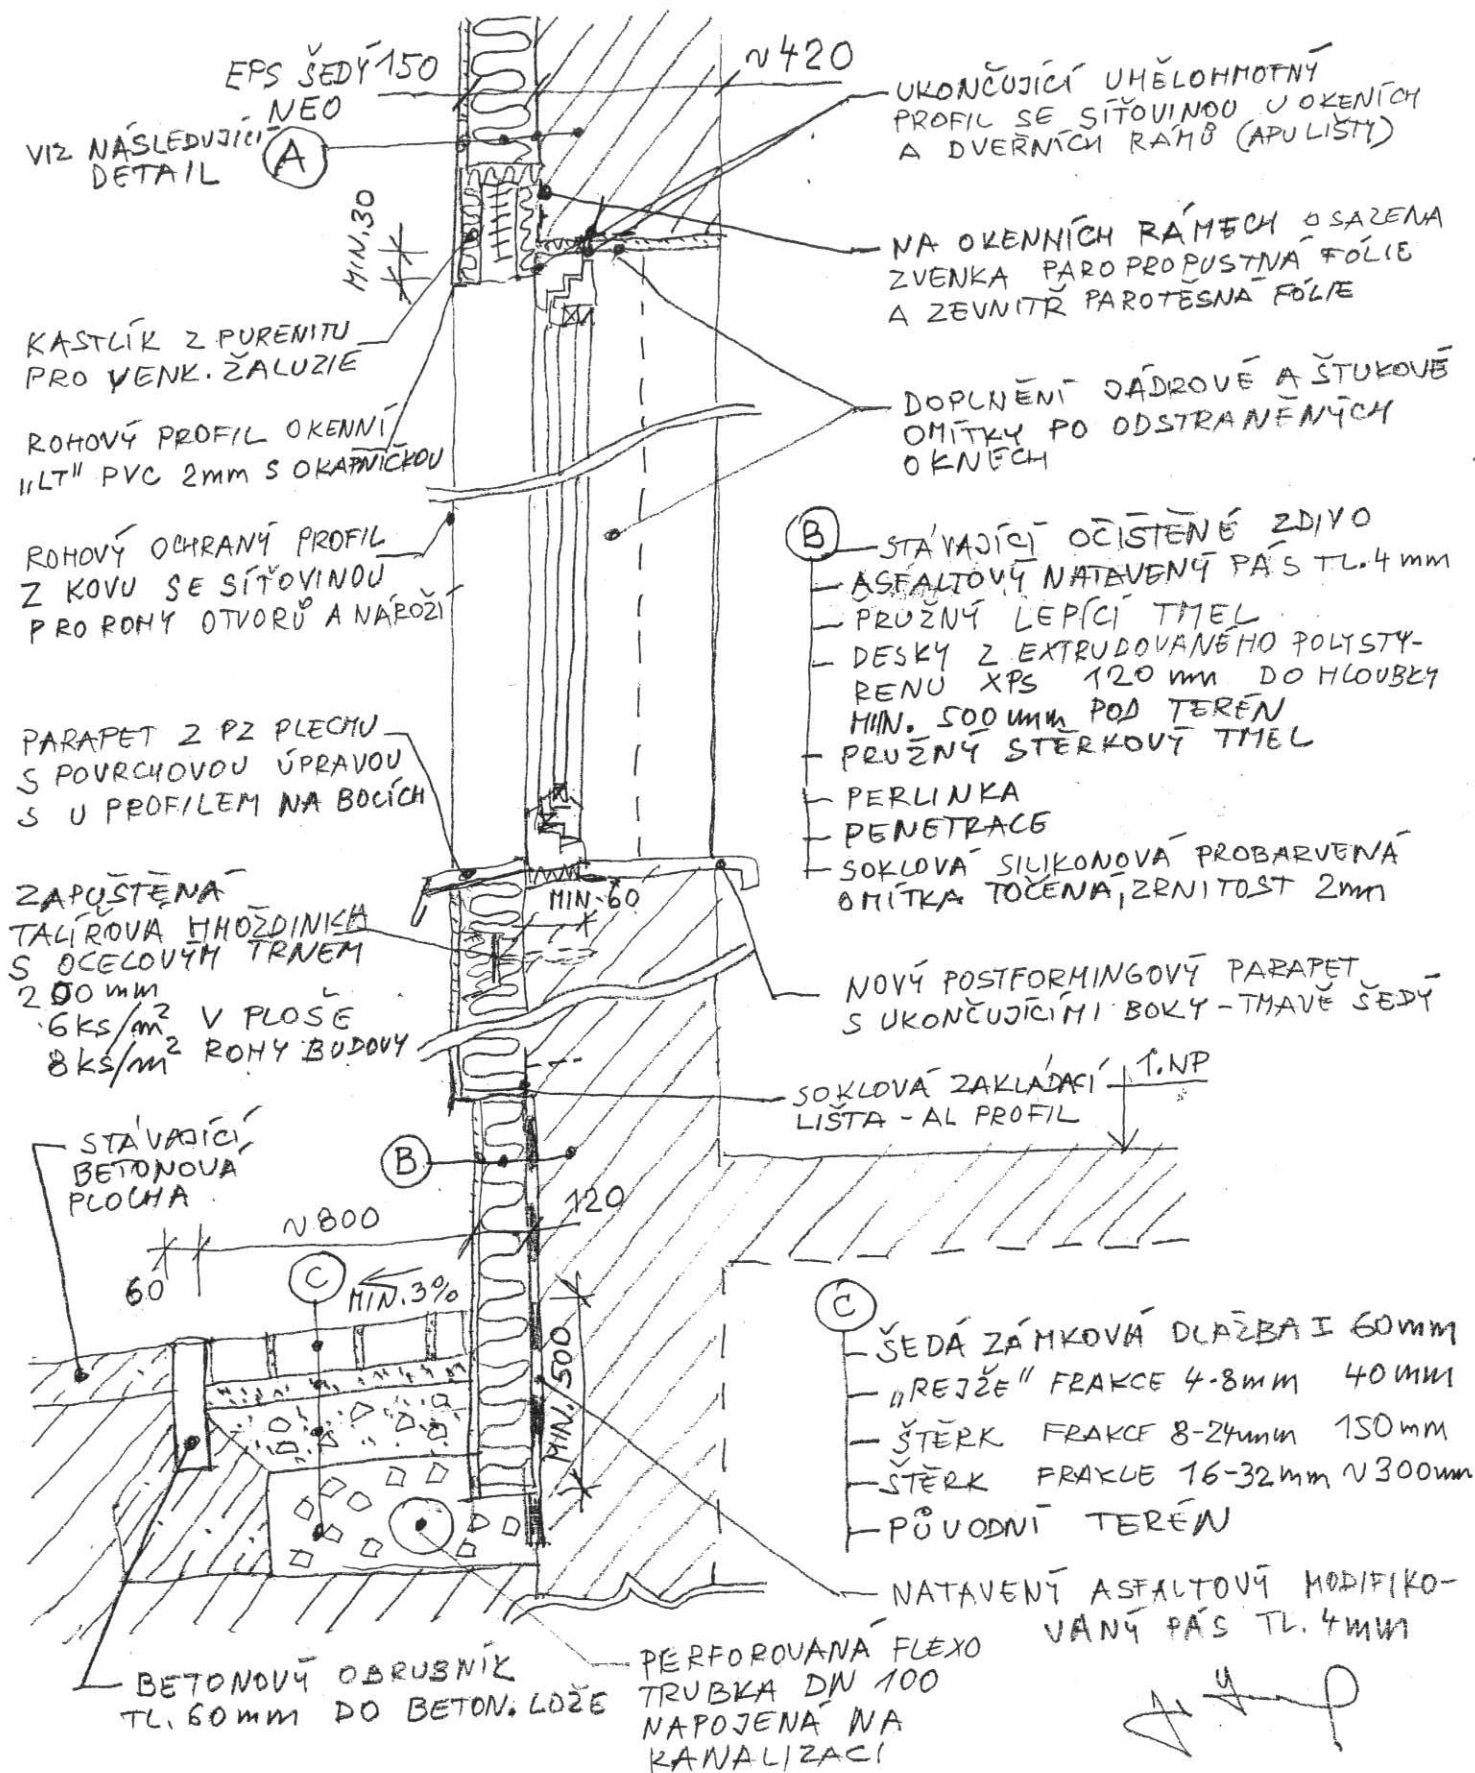 EPS ŠEDÝ 150
NEO
~420
VIZ NÁSLEDUJÍCÍ
DETAIL
A
UKONČUJÍCÍ UMĚLOHMOTNÝ
PROFIL SE SÍŤOVINOU U OKENÍCH
A DVEŘNÍCH RÁMŮ (APU LIŠTY)
MIN.30
NA OKENNÍCH RÁMECH OSAZENA
ZVENKA PAROPROPUSTNÁ FÓLIE
A ZEVNITŘ PAROTĚSNÁ FÓLIE
KASTLÍK Z PURENITU
PRO VENK. ŽALUZIE
DOPLNĚNÍ SÁDROVÉ A ŠTUKOVÉ
OMÍTKY PO ODSTRANĚNÝCH
OKNECH
ROHOVÝ PROFIL OKENNÍ
„LT" PVC 2mm S OKAPNIČKOU
ROHOVÝ OCHRANÝ PROFIL
Z KOVU SE SÍŤOVINOU
PRO ROHY OTVORŮ A NÁROŽÍ
B
STÁVAJÍCÍ OČIŠTĚNÉ ZDIVO
ASFALTOVÝ NATAVENÝ PÁS TL.4mm
PRUŽNÝ LEPÍCÍ TMEL
DESKY Z EXTRUDOVANÉHO POLYSTY-
RENU XPS 120mm DO HLOUBKY
MIN. 500mm POD TERÉN
PRUŽNÝ STĚRKOVÝ TMEL
PERLINKA
PENETRACE
SOKLOVÁ SILIKONOVÁ PROBARVENÁ
OMÍTKA TOČENÁ, ZRNITOST 2mm
PARAPET Z PZ PLECHU
S POVRCHOVOU ÚPRAVOU
S U PROFILEM NA BOCÍCH
MIN.60
ZAPUŠTĚNÁ
TALÍŘOVÁ HMOŽDINKA
S OCELOVÝM TRNEM
200mm
6ks/m² V PLOŠE
8ks/m² ROHY BUDOVY
NOVÝ POSTFORMINGOVÝ PARAPET
S UKONČUJÍCÍMI BOKY - TMAVĚ ŠEDÝ
SOKLOVÁ ZAKLÁDACÍ
LIŠTA - AL PROFIL
1.NP
STÁVAJÍCÍ
BETONOVÁ
PLOCHA
B
~800
120
60
C
MIN.3%
MIN.500
C
ŠEDÁ ZÁMKOVÁ DLAŽBA I 60mm
„REJŽE" FRAKCE 4-8mm 40mm
ŠTĚRK FRAKCE 8-24mm 150mm
ŠTĚRK FRAKCE 16-32mm ~300mm
PŮVODNÍ TERÉN
NATAVENÝ ASFALTOVÝ MODIFIKO-
VANÝ PÁS TL. 4mm
BETONOVÝ OBRUBNÍK
TL. 60mm DO BETON. LOŽE
PERFOROVANÁ FLEXO
TRUBKA DN 100
NAPOJENÁ NA
KANALIZACI